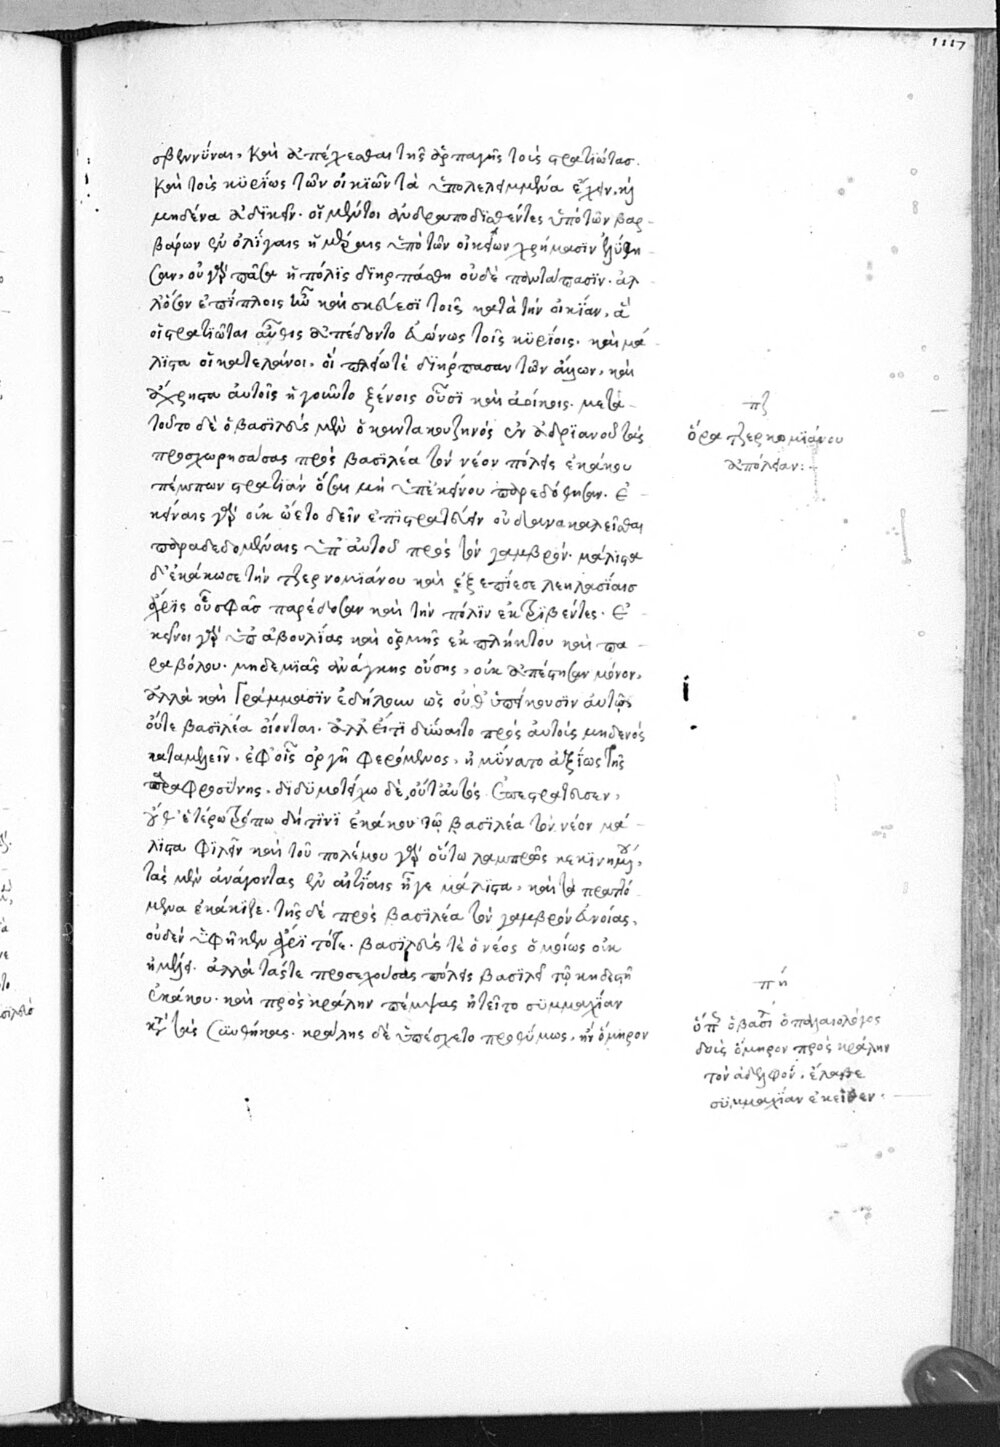 1117
σβεννύναι, καὶ ἀπέχεσθαι τῆς ἁρπαγῆς τοὺς στρατιώτας.
καὶ τοὺς κυρίους τῶν οἰκιῶν τὰ ὑπολελειμμένα ἔχειν, καὶ
μηδένα ἀδικεῖν. οἱ μέντοι ἀνδραποδισθέντες ὑπὸ τῶν βαρ-
βάρων ἐν ὀλίγαις ἡμέραις ὑπὸ τῶν οἰκείων χρήμασιν ἐλύθη-
σαν, οὐ γὰρ πᾶσα ἡ πόλις διηρπάσθη οὐδὲ παντάπασιν. ἀλ-
λ' ὅσον ἐπίπλοις καὶ σκεύεσι τοῖς κατὰ τὴν οἰκίαν, ἃ
οἱ στρατιῶται αὖθις ἀπέδοντο εὐώνως τοῖς κυρίοις. καὶ μά-
λιστα οἱ κατελάνοι, οἱ πλείω τὲ διήρπασαν τῶν ἄλλων, καὶ
ἄχρηστα αὐτοῖς ἡγοῦντο ξένοις οὖσι καὶ ἀοίκοις. μετὰ
τοῦτο δὲ ὁ βασιλεὺς μὲν ὁ καντακουζηνὸς ἐν ἀδριανοῦ τὰς
προσχωρησάσας πρὸς βασιλέα τὸν νέον πόλεις ἐκάκου
πέμπων στρατιὰν ὅσαι μὴ ὑπ' ἐκείνου παρεδόθησαν. ἐ-
κείναις γὰρ οὐκ ᾤετο δεῖν ἐπιστρατεύειν οὐδ' ἀνακαλεῖσθαι
παραδεδομέναις ὑπ' αὐτοῦ πρὸς τὸν γαμβρόν. μάλιστα
δ' ἐκάκωσε τὴν τζερνομιάνου καὶ ἐξεπίεσε λεηλασίαις
σφᾶς παρέδοσαν καὶ τὴν πόλιν ἐκτριβέντες. ἐ-
κεῖνοι γὰρ ὑπ' ἀβουλίας καὶ ὁρμῆς ἐκπλήκτου καὶ πα-
ραβόλου. μηδεμιᾶς ἀνάγκης οὔσης, οὐκ ἀπέστησαν μόνον,
ἀλλὰ καὶ γράμμασιν ἐδήλουν ὡς οὐθ' ὑπείκουσιν αὐτῷ
οὔτε βασιλέα οἴονται. ἀλλ' εἴ τι δύναιτο πρὸς αὐτοὺς μηδενὸς
καταμελεῖν. ἐφ' οἷς ὀργῇ φερόμενος, ἠμύνατο ἀξίως τῆς
παραφροσύνης. διδυμοτείχῳ δὲ οὔτ' αὐτὸς ἐπεστράτευσεν,
οὔθ' ἑτέρῳ τρόπῳ δή τινι ἐκάκου τῷ βασιλέα τὸν νέον μά-
λιστα φιλεῖν καὶ τοῦ πολέμου γὰρ οὕτω λαμπρῶς κεκινημένου,
τοὺς μὲν ἀνάγοντας ἐν αἰτίαις ἦγε μάλιστα, καὶ τὰ πραττό-
μενα ἐκάκιζε. τῆς δὲ πρὸς βασιλέα τὸν γαμβρὸν εὐνοίας,
οὐδὲν ὑφῆκεν ἄχρι τότε. βασιλεὺς τὲ ὁ νέος ὁμοίως οὐκ
ἠμέλει. ἀλλὰ τάς τε προσεχούσας πόλεις βασιλεῖ τῷ κηδεστῇ
ἐκάκου. καὶ πρὸς κράλην πέμψας ᾐτεῖτο συμμαχίαν
κατὰ τὰς συνθήκας. κράλης δὲ ὑπέσχετο προθύμως, ἢν ὅμηρον
πζ
ὅρα τζερνομιάνου
ἀπώλειαν:
πή
ὅπως ὁ βασιλεὺς ὁ παλαιολόγος
δοὺς ὅμηρον πρὸς κράλην
τὸν ἀδελφὸν, ἔλαβε
συμμαχίαν ἐκεῖθεν.